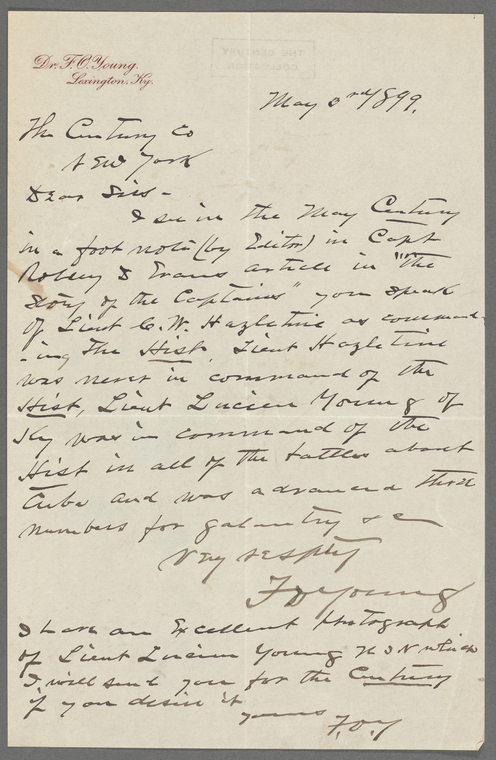 THE CENTURY
COLLECTION
Dr. F. O. Young.
Lexington, Ky.
May 3rd/899.
The Century Co
New York
Dear Sirs -
I see in the May Century
in a foot note (by Editor) in Capt
Robley D Evans article in "The
Story of the Captains" you speak
of Lieut C. W. Hazletine as command-
-ing The Hist. Lieut Hazletine
was never in command of the
Hist, Lieut Lucien Young of
Ky was in command of the
Hist in all of the battles about
Cuba and was advanced three
numbers for galantry &c
Very respty
F O Young
I have an Excellent Photograph
of Lieut Lucien Young U S N which
I will send you for the Century
if you desire it
yours F.O.Y